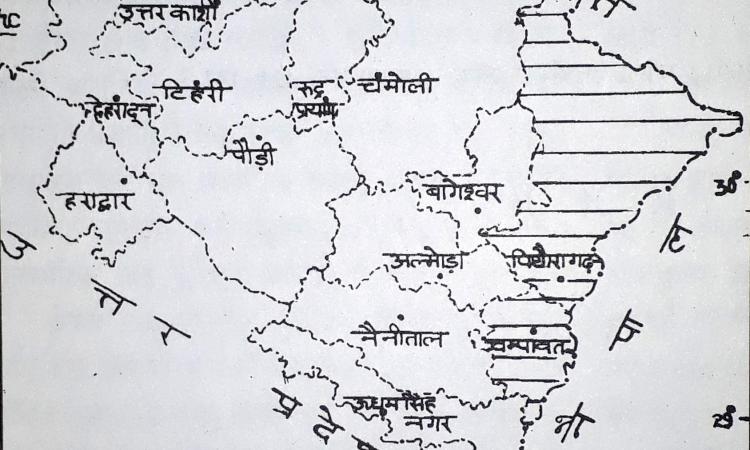 उत्तरकाशी
टिहरी
रुद्र
प्रयाग
चमोली
देहरादून
पौड़ी
हरिद्वार
बागेश्वर
30°
अल्मोड़ा
पिथौरागढ़
उ
त्त
र
नैनीताल
चम्पावत
प्र
दे
ऊधमसिंह
नगर
29°